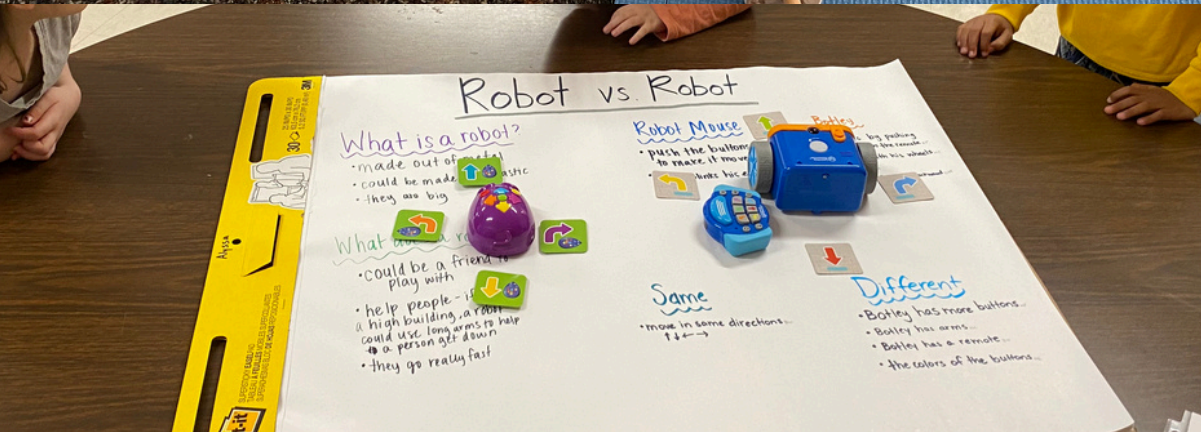 Robot vs. Robot
What is a robot?
• made out of
• could be made
• they are big
What
• could be a friend to
play with
• help people - if
a high building, a robot
could use long arms to help
a person get down
• they go really fast
Robot Mouse
• push the buttons
to make it move
his
Botley
by pushing
the remote...
his wheels...
Same
• move in same directions...
↑↓←→
Different
• Botley has more buttons...
• Botley has arms...
• Botley has a remote...
• the colors of the buttons...
Alyssa
30
3M
t-it